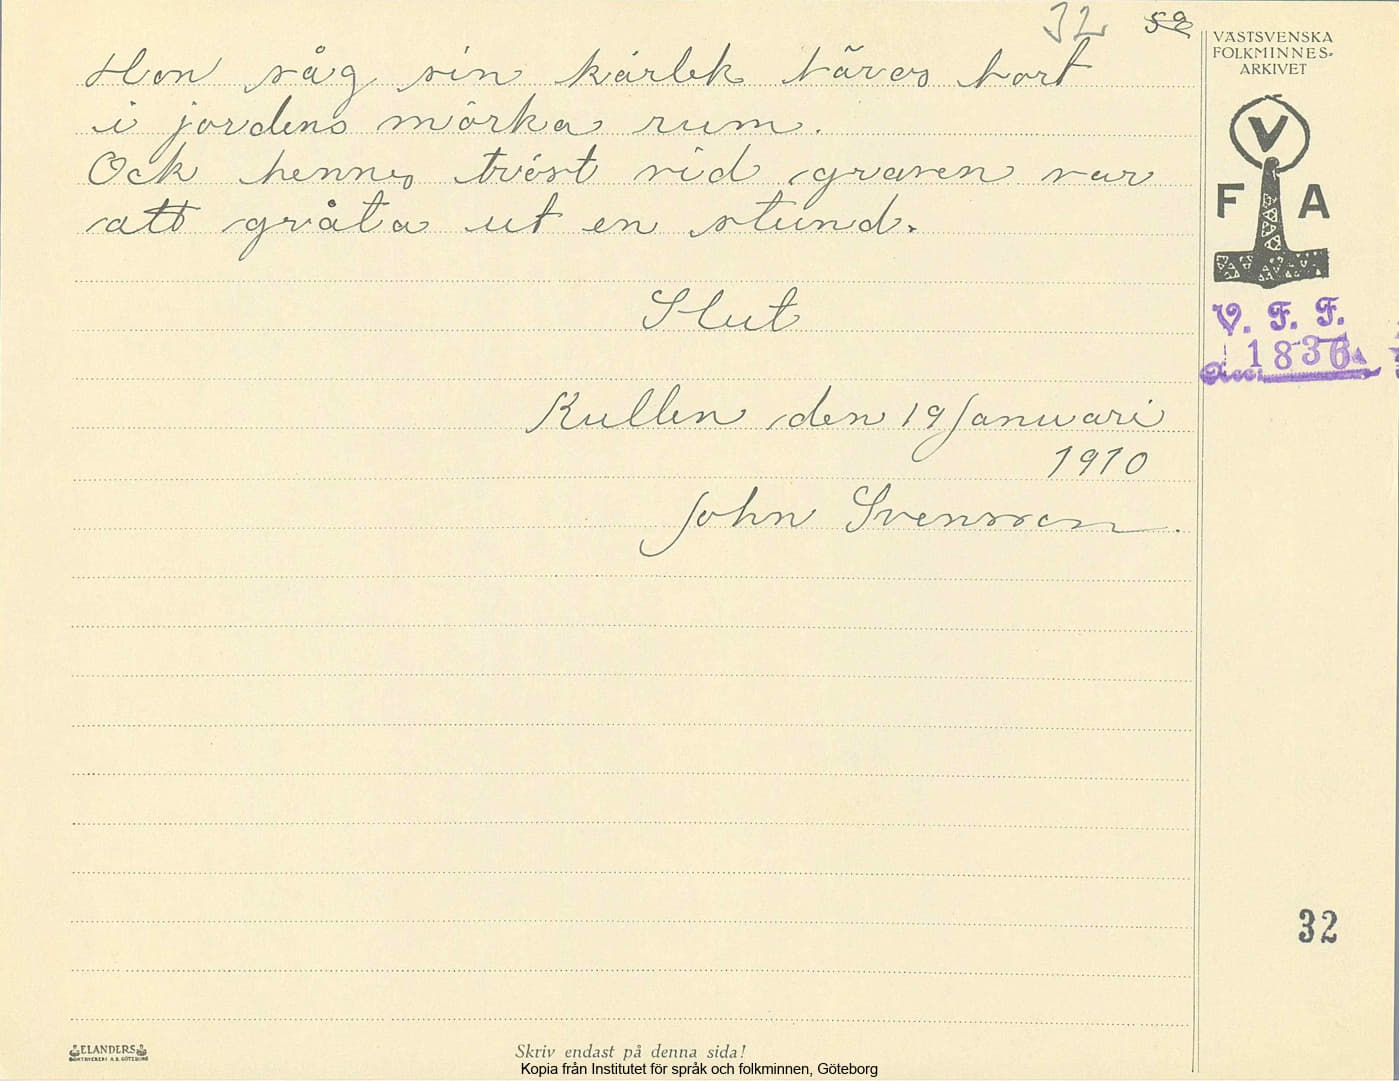 32 59
VÄSTSVENSKA
FOLKMINNES-
ARKIVET
V
F A
V. F. F.
1836
Acc:
Hon såg sin kärlek bäras bort
i jordens mörka rum.
Ock hennes tröst vid graven var
att gråta ut en stund.
Slut
Kullen den 19 Januari
1910
John Svensson.
32
ELANDERS
BOKTRYCKERI A.B. GÖTEBORG
Skriv endast på denna sida!
Kopia från Institutet för språk och folkminnen, Göteborg